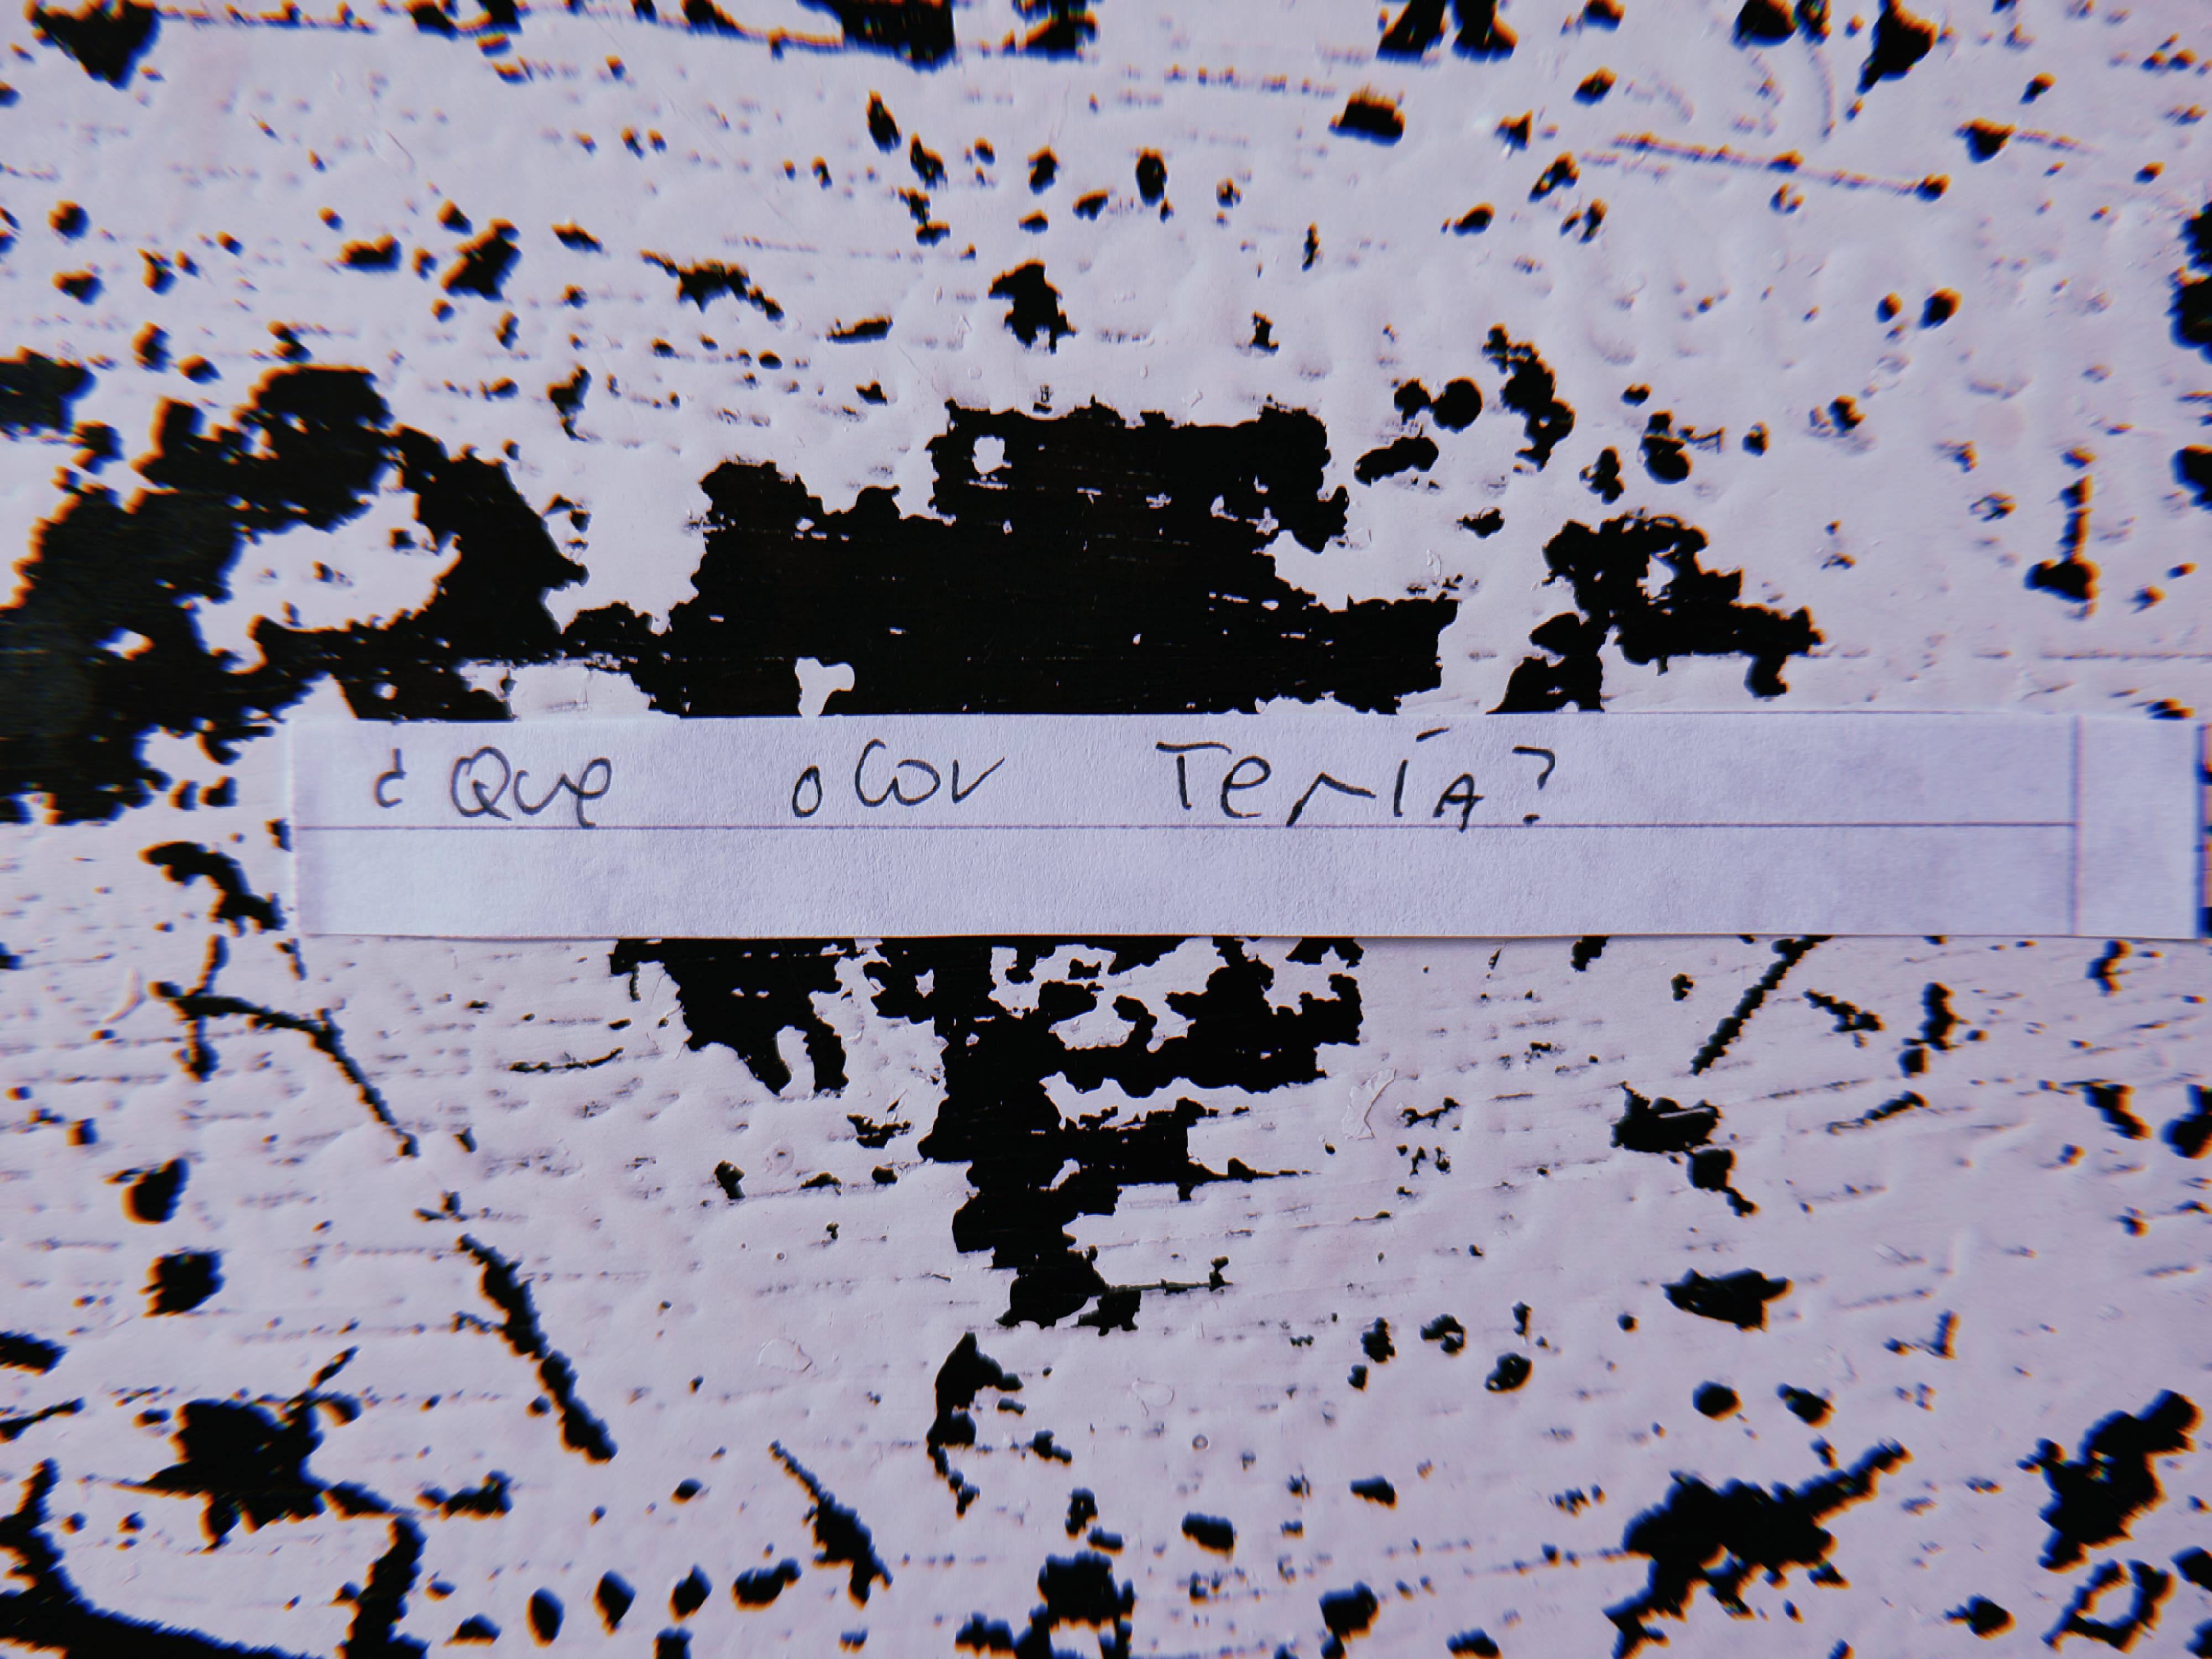 ¿Que olor Tenía?